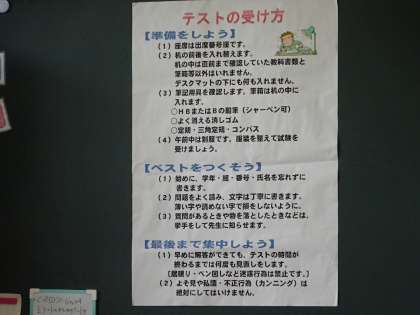 テストの受け方
【準備をしよう】
（１）座席は出席番号順です。
（２）机の前後を入れ替えます。
机の中は直前まで確認していた教科書類と
筆箱等以外はいれません。
デスクマットの下にも何も入れません。
（３）筆記用具を確認します。筆箱は机の中に
入れます。
○ＨＢまたはＢの鉛筆（シャーペン可）
○よく消える消しゴム
○定規・三角定規・コンパス
（４）午前中は制服です。服装を整えて試験を
受けましょう。
【ベストをつくそう】
（１）始めに、学年・組・番号・氏名を忘れずに
書きます。
（２）問題をよく読み、文字は丁寧に書きます。
薄い字や読めない字で損をしないように。
（３）質問があるときや物を落としたときなどは、
挙手をして先生に知らせます。
【最後まで集中しよう】
（１）早めに解答ができても、テストの時間が
終わるまでは何度も見直しをします。
（居眠り・ペン回しなど迷惑行為は禁止です。）
（２）よそ見や私語・不正行為（カンニング）は
絶対にしてはいけません。